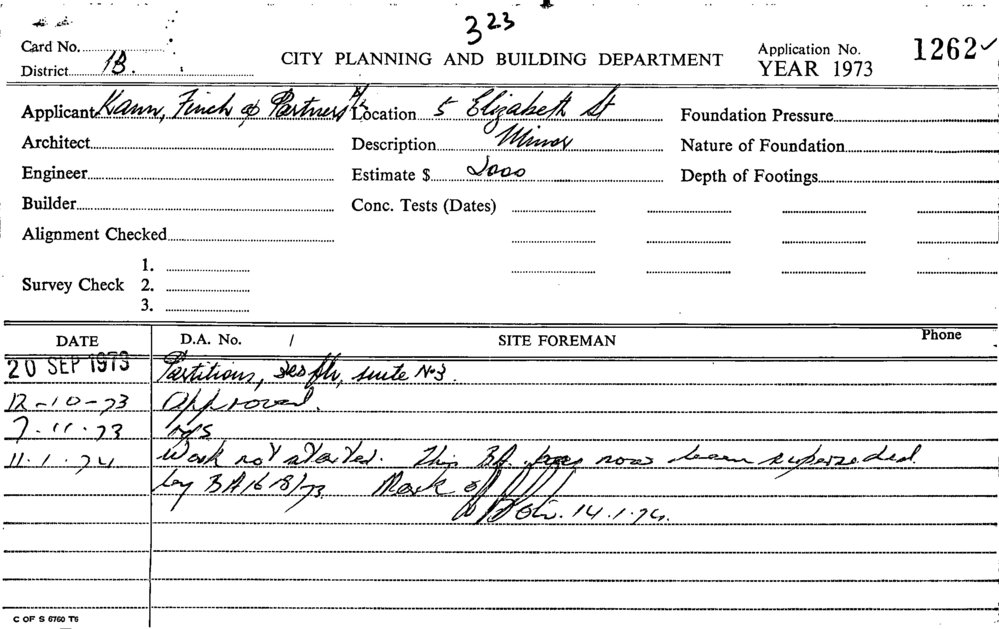 323
Card No.
CITY PLANNING AND BUILDING DEPARTMENT
Application No. 1262
District 1B.
YEAR 1973
Applicant Kann, Finch & Partners Location 5 Elizabeth St Foundation Pressure
Architect Description Minor Nature of Foundation
Engineer Estimate $ 2000 Depth of Footings
Builder Conc. Tests (Dates)
Alignment Checked
1.
Survey Check 2.
3.
DATE D.A. No. / SITE FOREMAN Phone
20 SEP 1973 Partitions, suite No3.
12-10-73 Approved.
7.11.73
11.1.74 Work not started. This BA has now been superseded
by BA 1618/73. Mark off
14.1.74.
C OF S 6760 T6